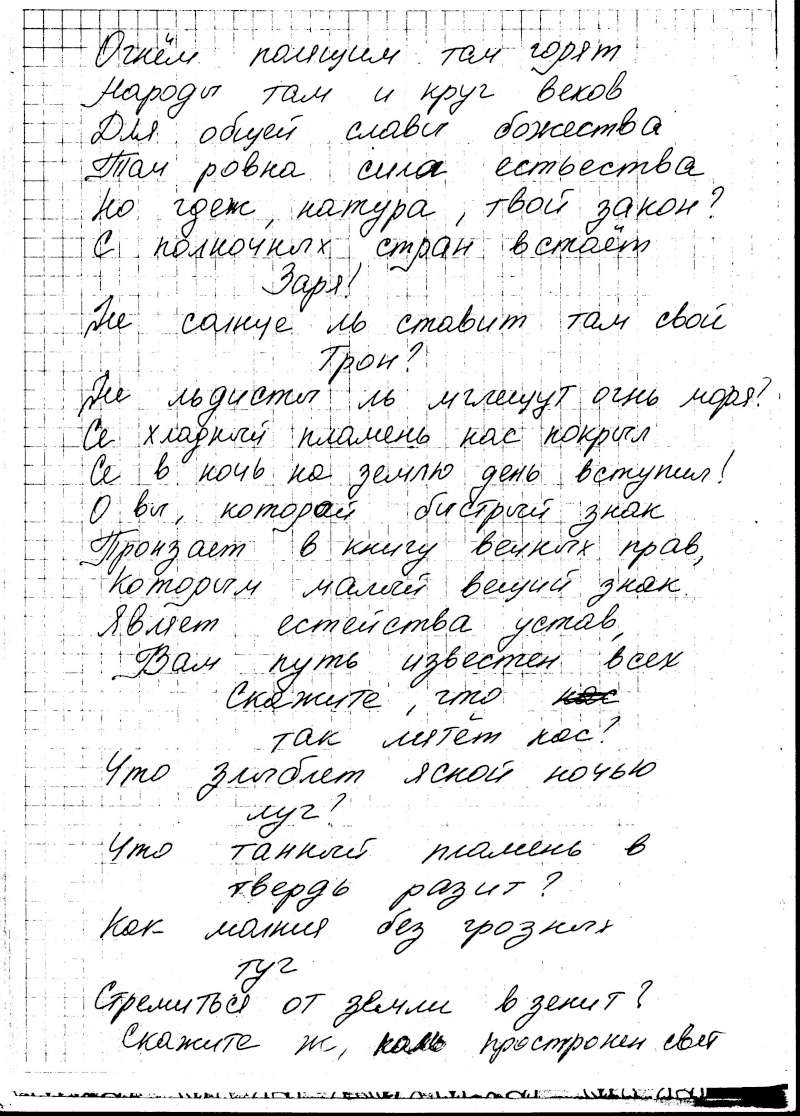 Огнём полящим там горят
Народы там и круг веков
Для общей славы божества
Там ровна сила естьества
Но гдеж, натура, твой закон?
С полночных стран встаёт
Заря!
Не солнце ль ставит там свой
Трон?
Не льдисты ль мглещут огнь моря?
Се хладный пламень нас покрыл
Се в ночь на землю день вступил!
О вы, которой быстрый знак
Пронзает в книгу вечных прав,
Которым малый вещий знак
Являет естейства устав,
Вам путь известен всех
Скажите, что нас
так мятёт нас?
Что злыблет ясной ночью
луг?
Что танный пламень в
твердь разит?
Как молния без грозных
туг
Стремиться от земли в зенит?
Скажите ж, коль простронен свет